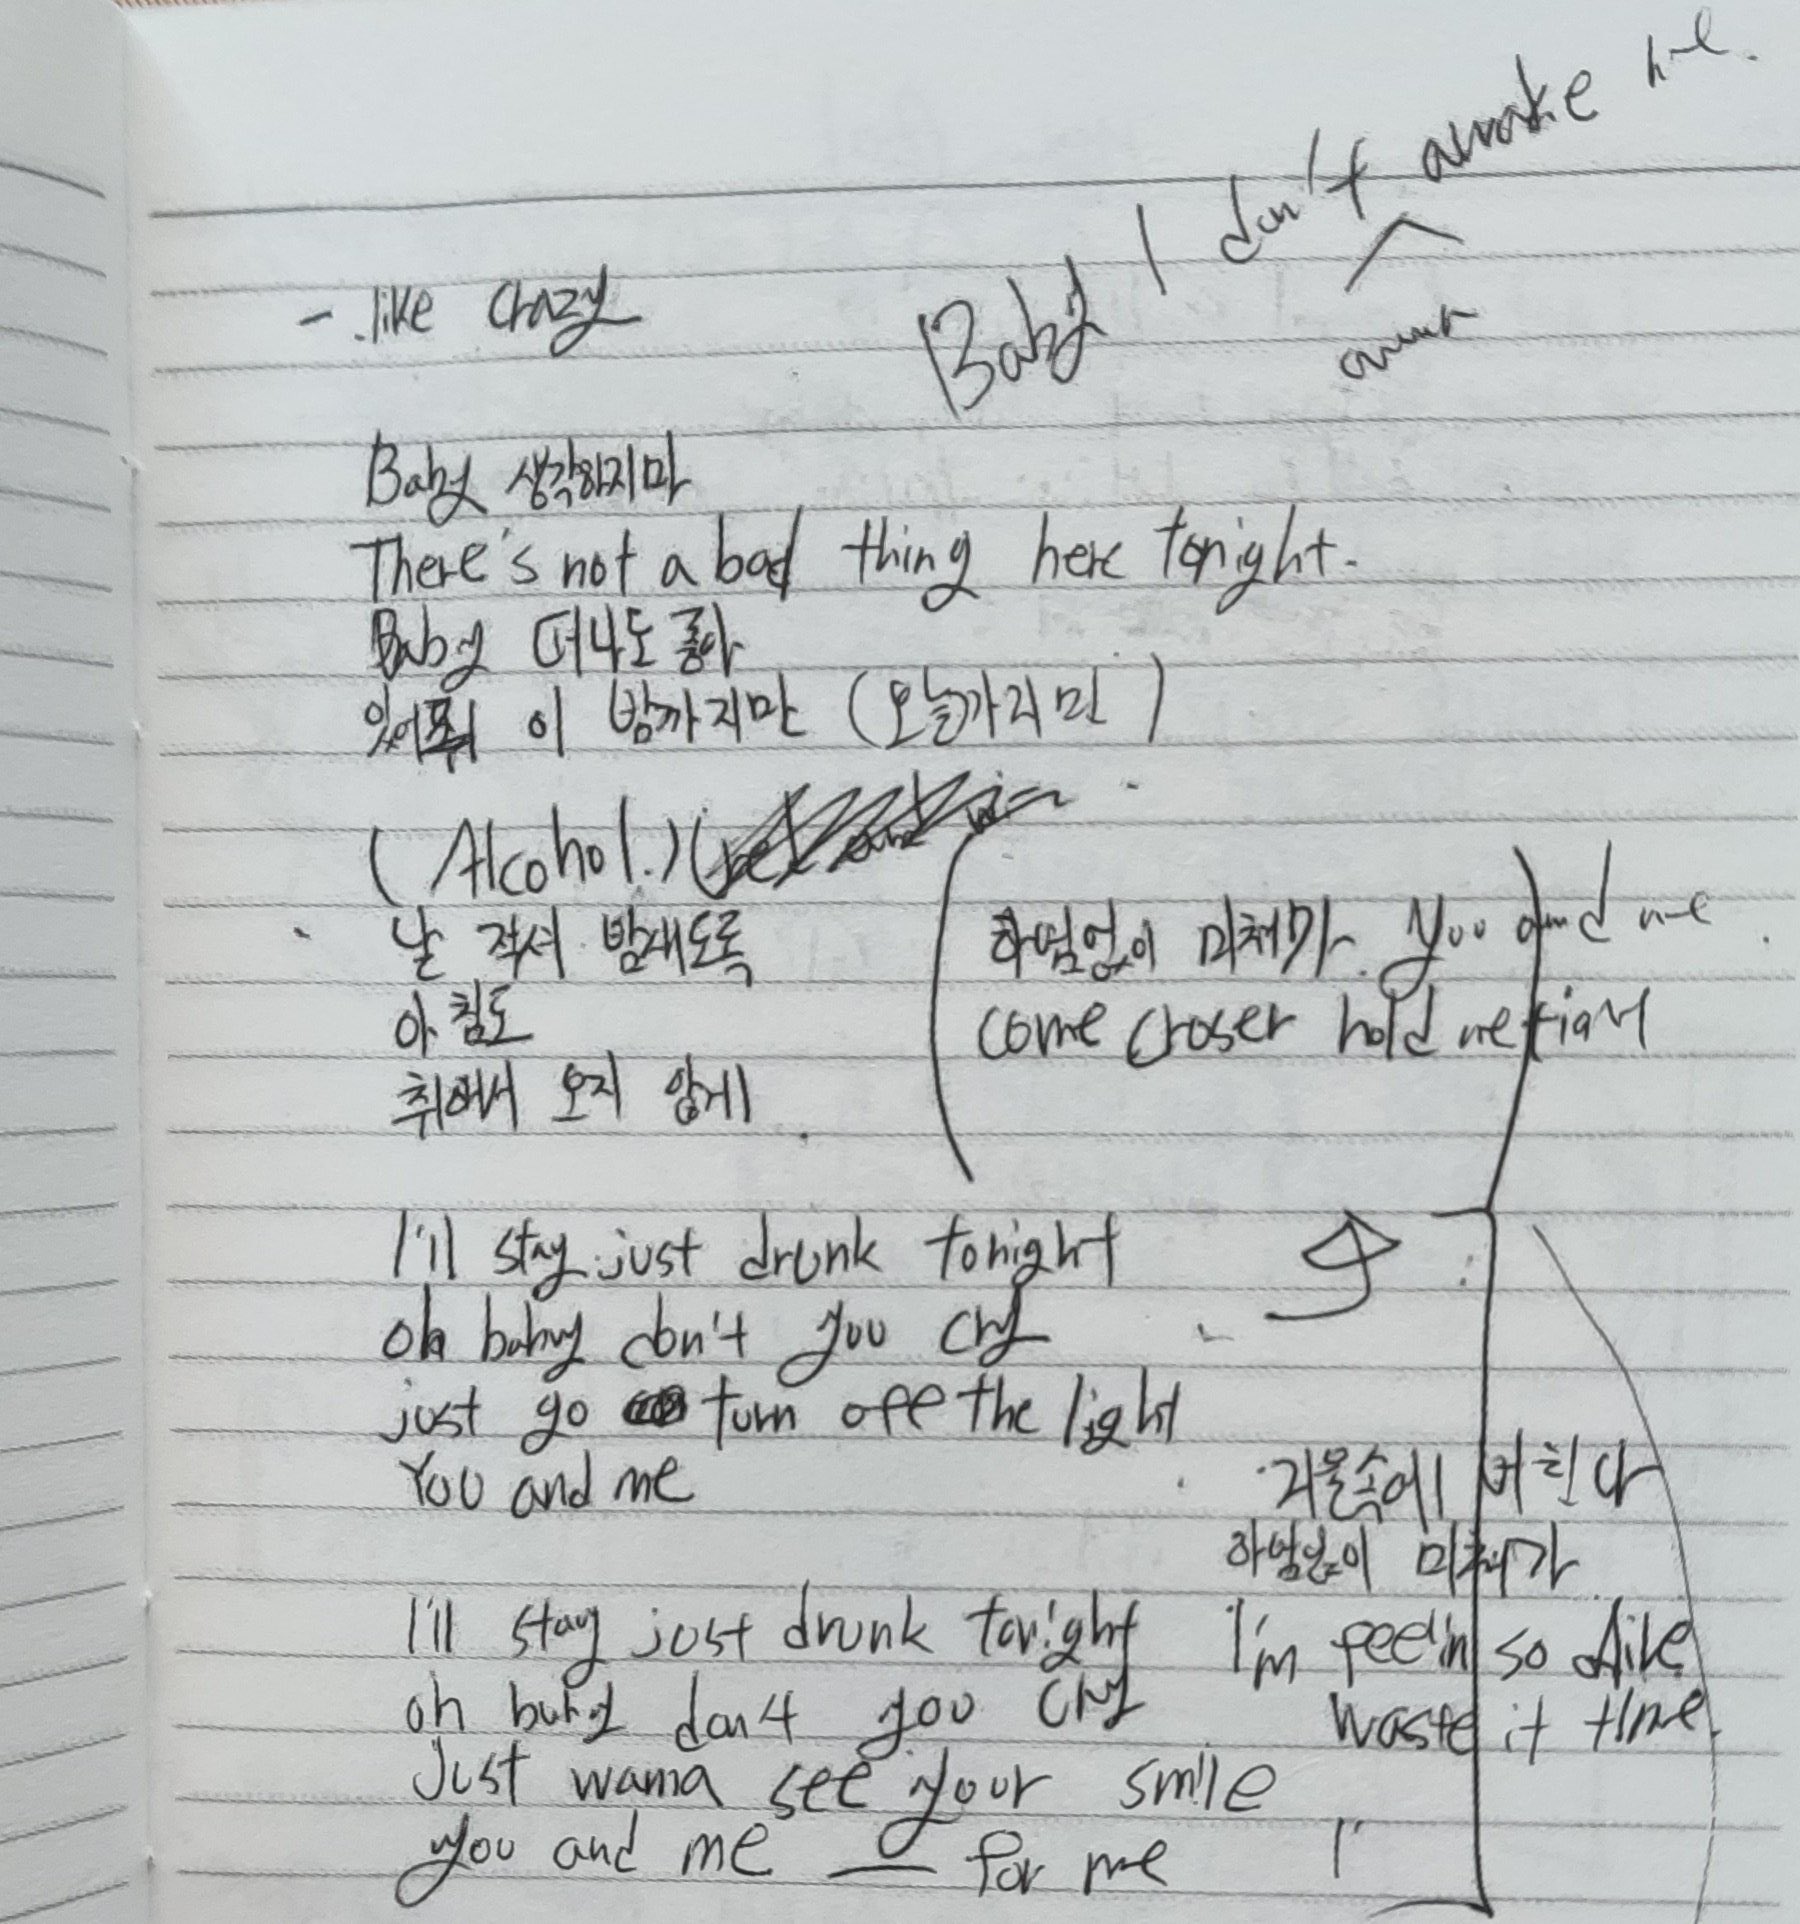 Baby I don't awake me.
- like crazy
Baby 생각하지마
There's not a bad thing here tonight.
Baby 떠나도 좋아
있어줘 이 밤까지만 (오늘까지만)
(Alcohol.)
날 적셔 밤새도록
아침도
취해서 오지 않게
하염없이 미쳐가 you and me
come croser hold me
I'll stay just drunk tonight
oh baby don't you cry
just go turn off the light
You and me
거울속에 비친 나
하염없이 미쳐가
I'll stay just drunk tonight
oh baby don't you cry
Just wanna see your smile
you and me — for me
I'm feel'in so Alive
waste it time.
I'